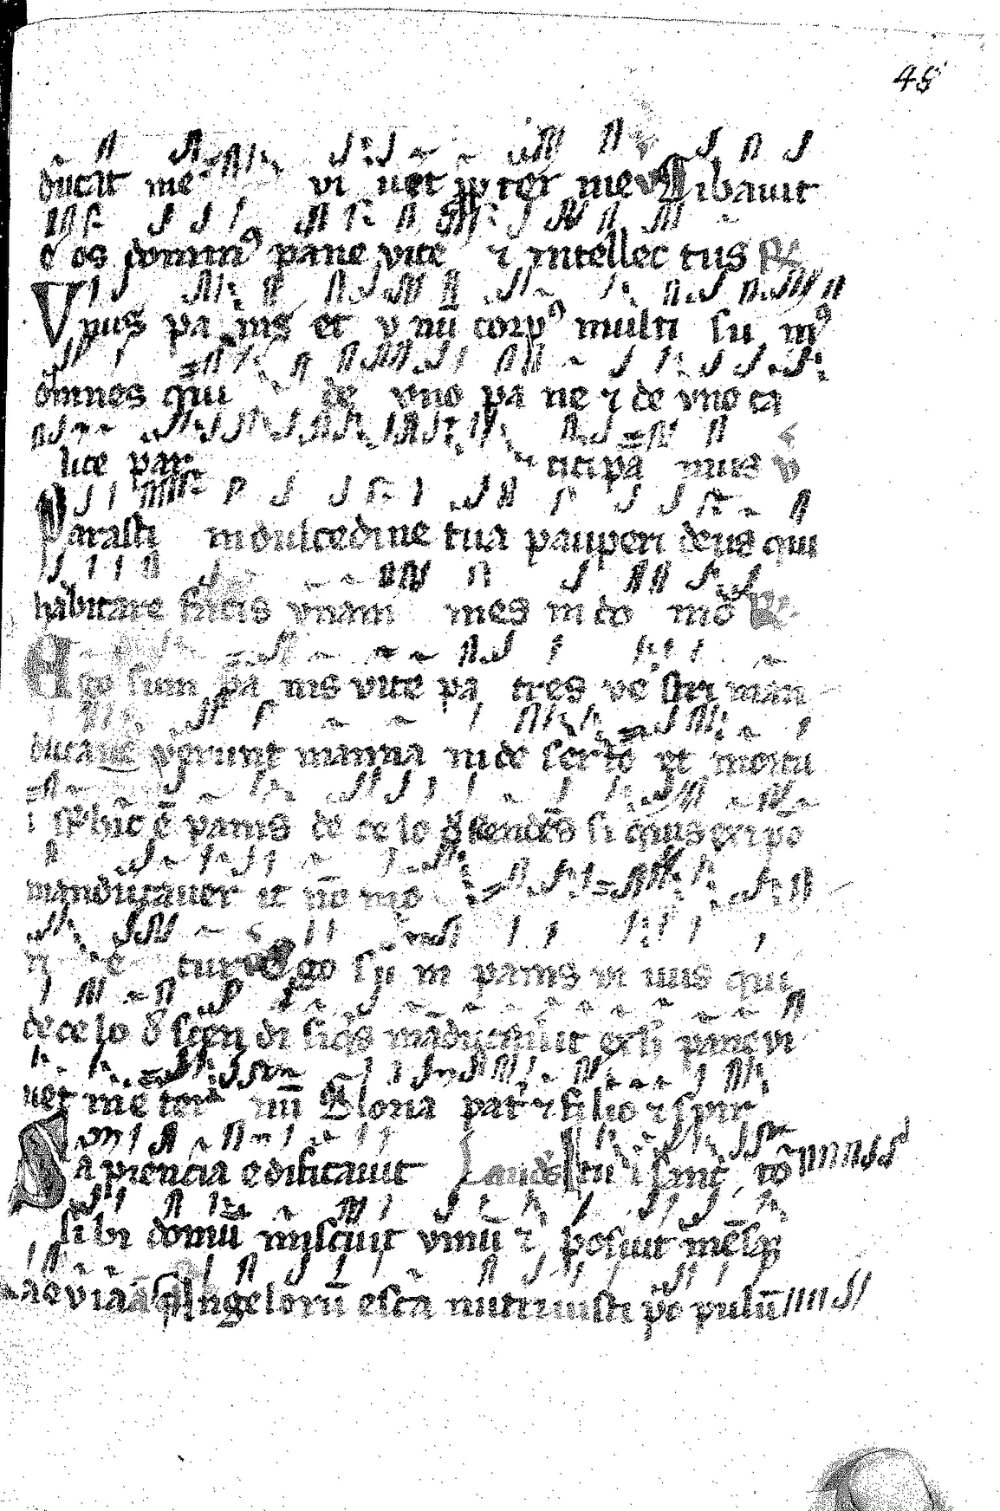 48
ducat me vivet ꝓpter me v̄ Cibavit
e os dominꝰ pane vite ⁊ intellectus R̷
Vnus panis et vnū corpꝰ multi sumꝰ
om̄nes qui de vno pane ⁊ de vno ca
lice par ticipamus v̄
Parasti in dulcedine tua pauperi deus qui
habitare facis vnam mes in domo R̷
Ego sum panis vite patres vestri man
ducaverunt manna in deserto et mortu
i sūt hic ē panis de celo descendēs si quis ex ip̄o
manducaver it nō mo
ri e tur v̄ Ego sum panis vi uus qui
de celo descendi si q̄s māducauit ex h̄ pane vi
uet in eternū Gloria patri ⁊ filio ⁊ spir
Sapiencia edificauit Laudes tui sanc to
sibi domū miscuit vinū ⁊ posuit mēsā
aeuia ā Angelorū esca nutriuisti po pulū